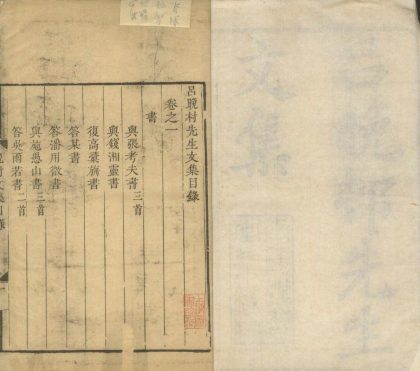 呂晚村先生文集目錄
卷之一
書
與張考夫書三首
與錢湘靈書
復高彙旃書
答某書
答潘用微書
與施愚山書三首
答吳雨若書二首
呂晚村先生
文集